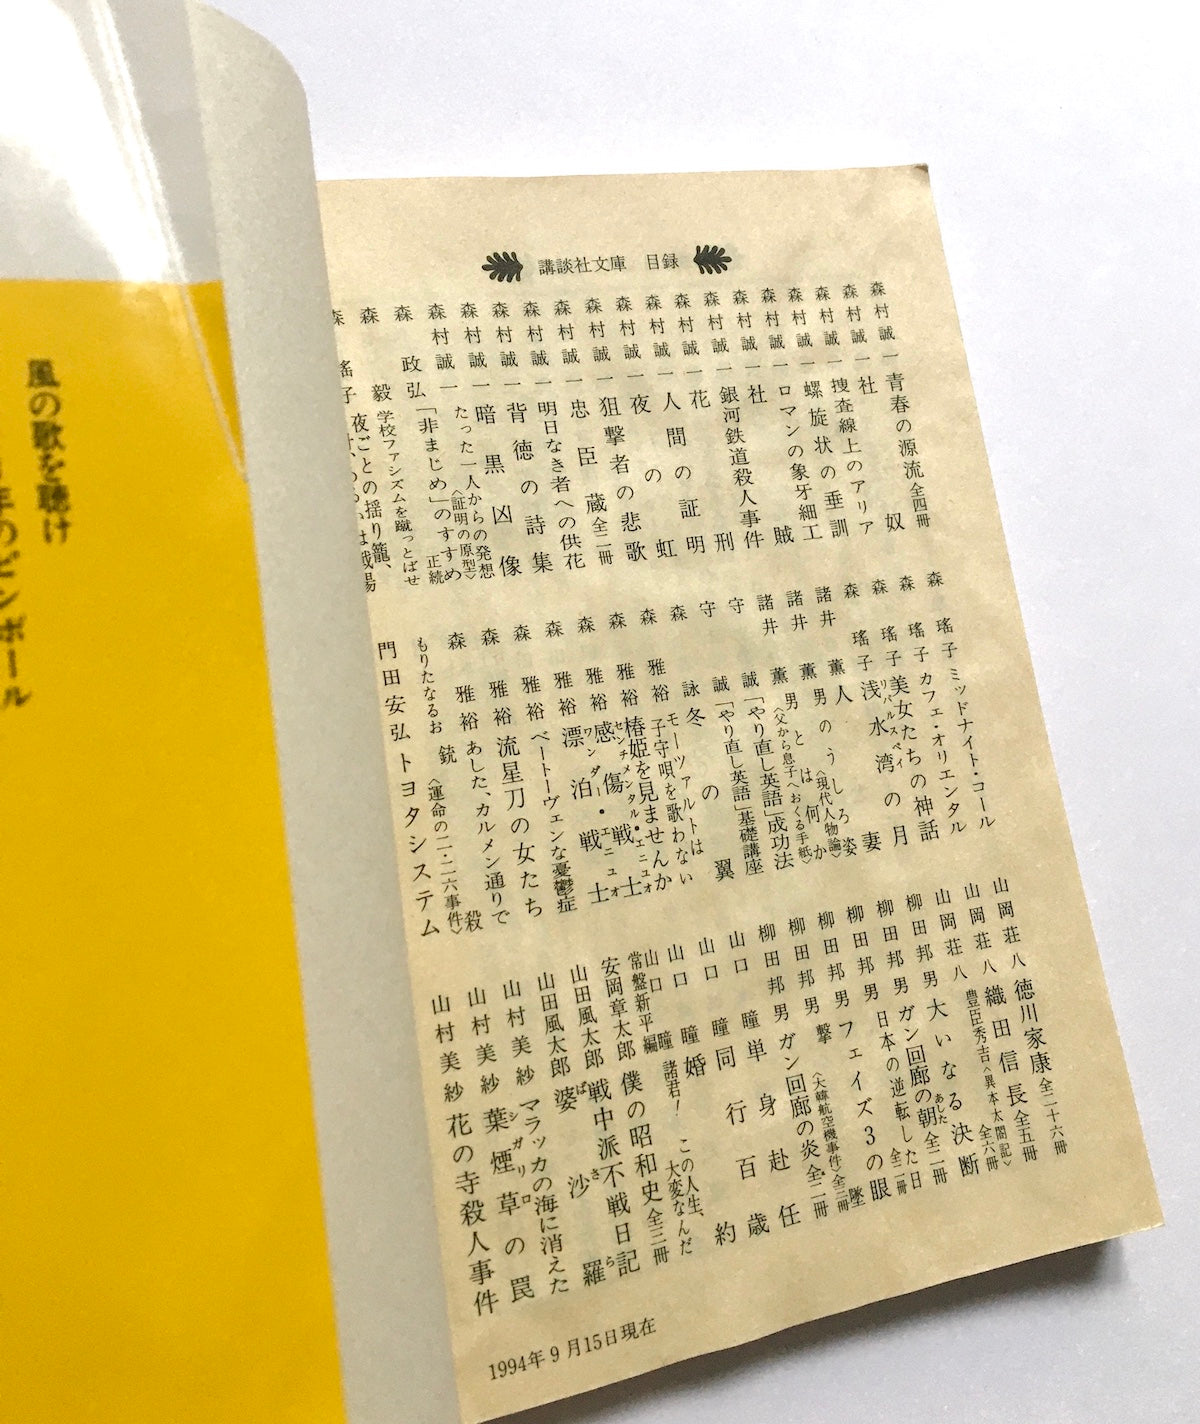 講談社文庫 目録
森村誠一 青春の源流 全四冊
森村誠一 社 奴
森村誠一 捜査線上のアリア
森村誠一 螺旋状の垂訓
森村誠一 ロマンの象牙細工
森村誠一 社 賊
森村誠一 銀河鉄道殺人事件
森村誠一 花 刑
森村誠一 人間の証明
森村誠一 夜の虹
森村誠一 狙撃者の悲歌
森村誠一 忠臣蔵 全二冊
森村誠一 明日なき者への供花
森村誠一 背徳の詩集
森村誠一 暗黒凶像
森村誠一 たった一人からの発想〈証明の原型〉
森 政弘 「非まじめ」のすすめ 正続
森 毅 学校ファシズムを蹴っとばせ
森 瑤子 夜ごとの揺り籠、
は戦場
森 瑤子 ミッドナイト・コール
森 瑤子 カフェ・オリエンタル
森 瑤子 美女たちの神話
森 瑤子 浅水湾の月 リパルスベイ
諸井 薫 人妻
諸井 薫 男のうしろ姿〈現代人物論〉
諸井 薫 男とは何か〈父から息子へおくる手紙〉
守 誠 「やり直し英語」成功法
守 誠 「やり直し英語」基礎講座
森 詠 冬の翼
森 雅裕 モーツァルトは子守唄を歌わない
森 雅裕 椿姫を見ませんか
森 雅裕 感傷戦士 センチメンタル・エニュオ
森 雅裕 漂泊戦士 ワンダー・エニュオ
森 雅裕 ベートーヴェンな憂鬱症
森 雅裕 流星刀の女たち
森 雅裕 あした、カルメン通りで
もりたなるお 銃殺〈運命の二・二六事件〉
門田安弘 トヨタシステム
山岡荘八 徳川家康 全二十六冊
山岡荘八 織田信長 全五冊
山岡荘八 豊臣秀吉〈異本太閤記〉全六冊
柳田邦男 大いなる決断
柳田邦男 ガン回廊の朝 あした 全二冊
柳田邦男 日本の逆転した日 全二冊
柳田邦男 フェイズ3の眼
柳田邦男 撃墜〈大韓航空機事件〉全三冊
柳田邦男 ガン回廊の炎 全二冊
山口 瞳 単身赴任
山口 瞳 同行百歳
山口 瞳 婚約
山口 瞳 常盤新平編 諸君！この人生、大変なんだ
安岡章太郎 僕の昭和史 全三冊
山田風太郎 戦中派不戦日記
山田風太郎 婆沙羅 ばさら
山村美紗 マラッカの海に消えた
山村美紗 葉煙草の罠 シガリロ
山村美紗 花の寺殺人事件
1994年9月15日現在
風の歌を聴け
年のピンボール